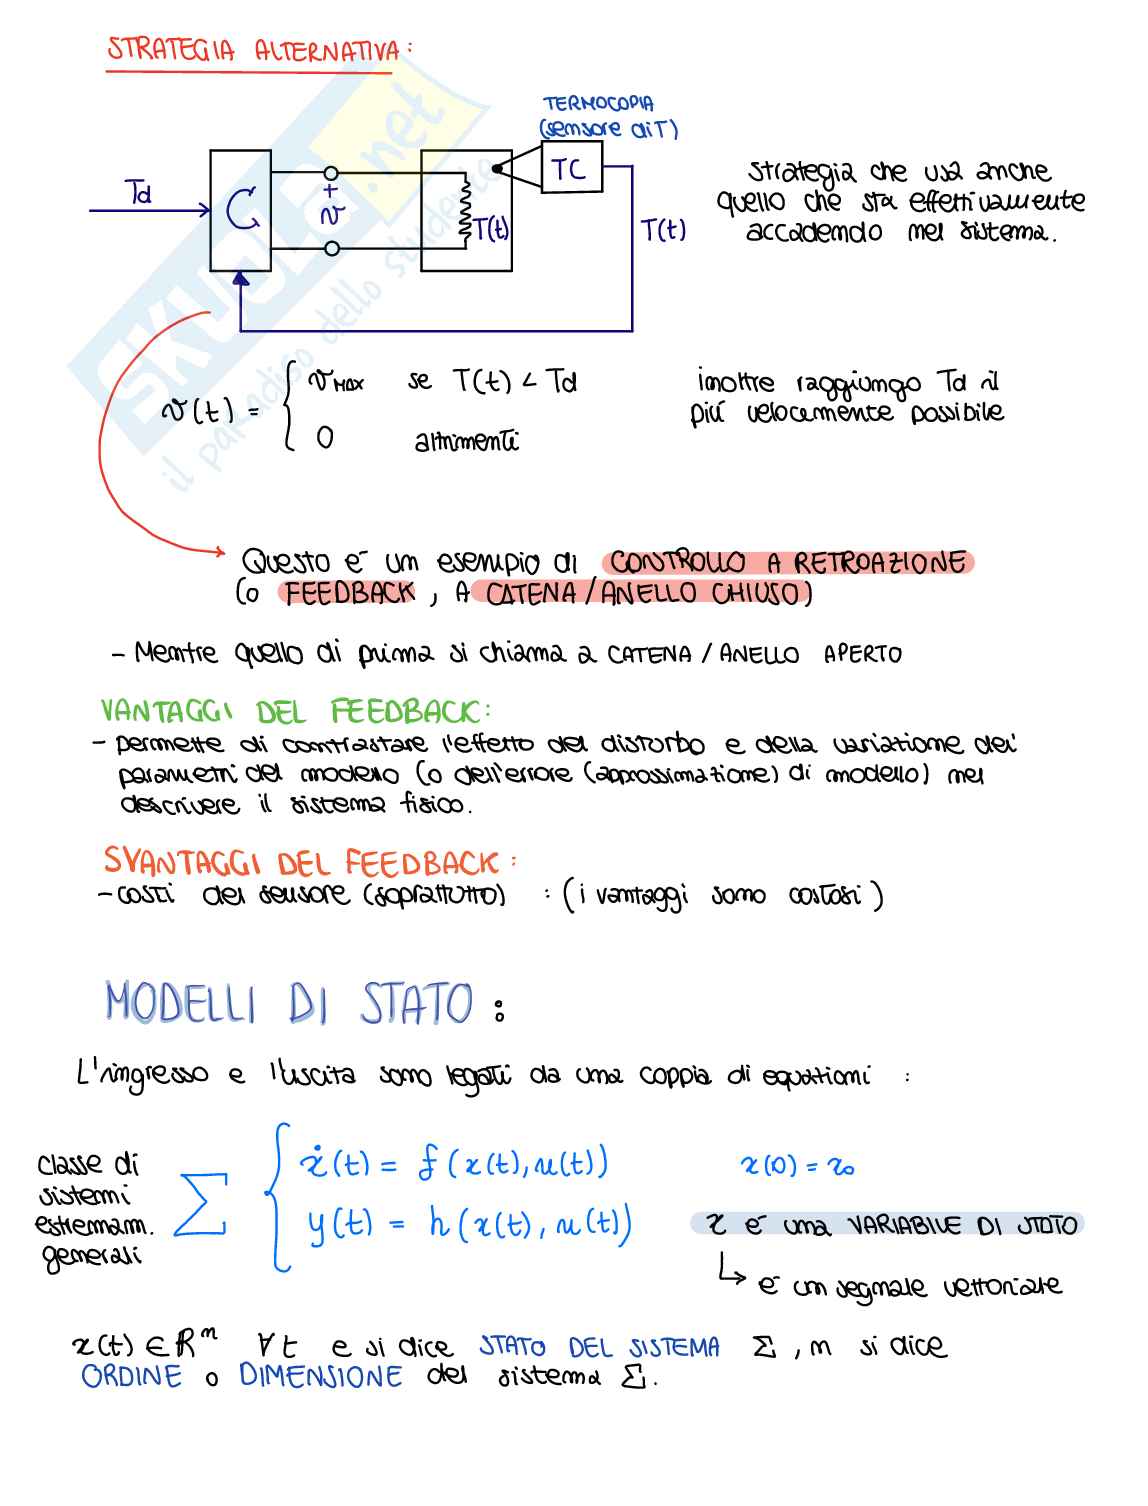 STRATEGIA ALTERNATIVA:
TERMOCOPIA
(sensore di T)
Td
C
+
v
T(t)
TC
T(t)
strategia che usa anche
quello che sta effettivamente
accadendo nel sistema.
v(t) = { vMAX se T(t) < Td
0 altrimenti
inoltre raggiungo Td il
più velocemente possibile
SKUOLA.net
il paradiso dello studente
Questo è un esempio di CONTROLLO A RETROAZIONE
(o FEEDBACK, A CATENA/ANELLO CHIUSO)
- Mentre quello di prima si chiama a CATENA/ANELLO APERTO
VANTAGGI DEL FEEDBACK:
- permette di contrastare l'effetto del disturbo e della variazione dei
parametri del modello (o dell'errore (approssimazione) di modello) nel
descrivere il sistema fisico.
SVANTAGGI DEL FEEDBACK:
- costi del sensore (soprattutto) : (i vantaggi sono costosi)
MODELLI DI STATO:
L'ingresso e l'uscita sono legati da una coppia di equazioni :
classe di
sistemi
estremam.
generali
Σ { ẋ(t) = f(x(t), u(t)) x(0) = x₀
y(t) = h(x(t), u(t))
x è una VARIABILE DI STATO
↳ è un segnale vettoriale
x(t) ∈ ℝⁿ ∀t e si dice STATO DEL SISTEMA Σ, n si dice
ORDINE o DIMENSIONE del sistema Σ.